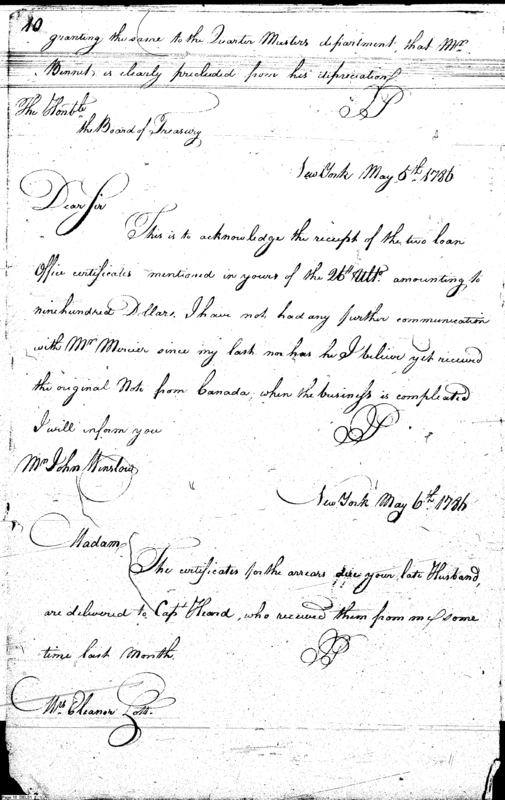 40
granting the same to the Quarter Masters department, that Mr.
Binnet, is clearly precluded from his depreciation.
JP
The Honble.
the Board of Treasury
New York May 5th. 1786
Dear Sir
This is to acknowledge the receipt of the two loan
Office certificates mentioned in yours of the 26th. Ulto. amounting to
nine hundred Dollars, I have not had any further communication
with Mr. Mercier since my last nor has he I believe yet received
the original Note from Canada; when the business is compleated
I will inform you
JP
Mr. John Winslow
New York May 6th. 1786
Madam
The certificates for the arrears due your late Husband,
are delivered to Capt. Heard, who received them from me some
time last Month.
JP
Mrs. Eleanor